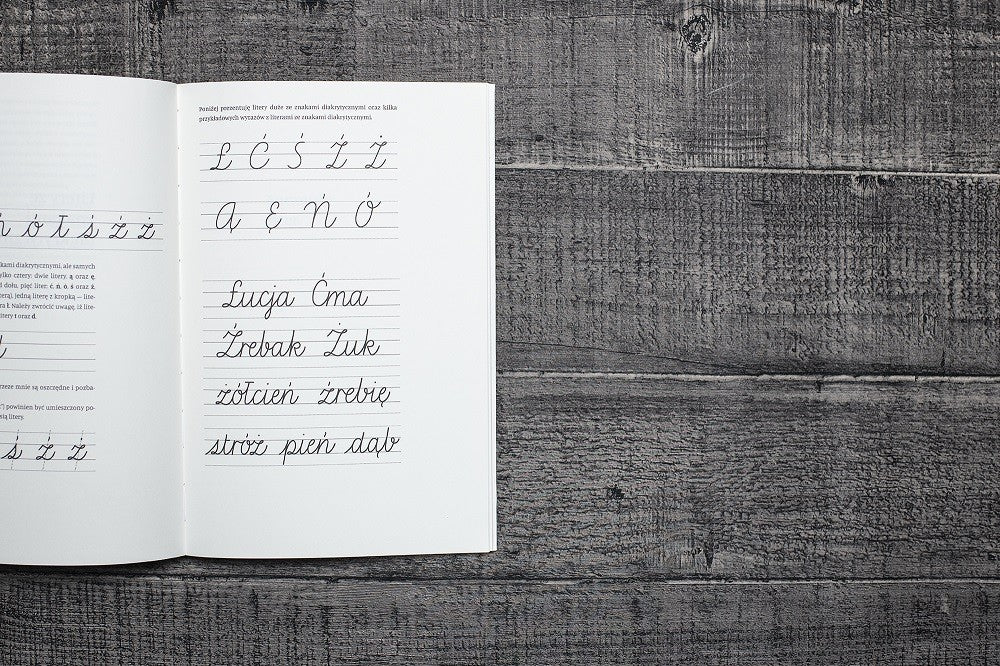 ń ó ł ś ź ż
kami diakrytycznymi, ale samych
ylko cztery: dwie litery, ą oraz ę,
d dołu, pięć liter: ć, ń, ó, ś oraz ź,
terą), jedną literę z kropką — lite-
ra ł. Należy zwrócić uwagę, iż lite-
litery t oraz d.
rzeze mnie są oszczędne i pozba-
powinien być umieszczony po-
sią litery.
ś ź ż
Poniżej prezentuję litery duże ze znakami diakrytycznymi oraz kilka
przykładowych wyrazów z literami ze znakami diakrytycznymi.
Ł Ć Ś Ź Ż
Ą Ę Ń Ó
Łucja Ćma
Źrebak Żuk
żółcień źrebię
stróż pień dąb